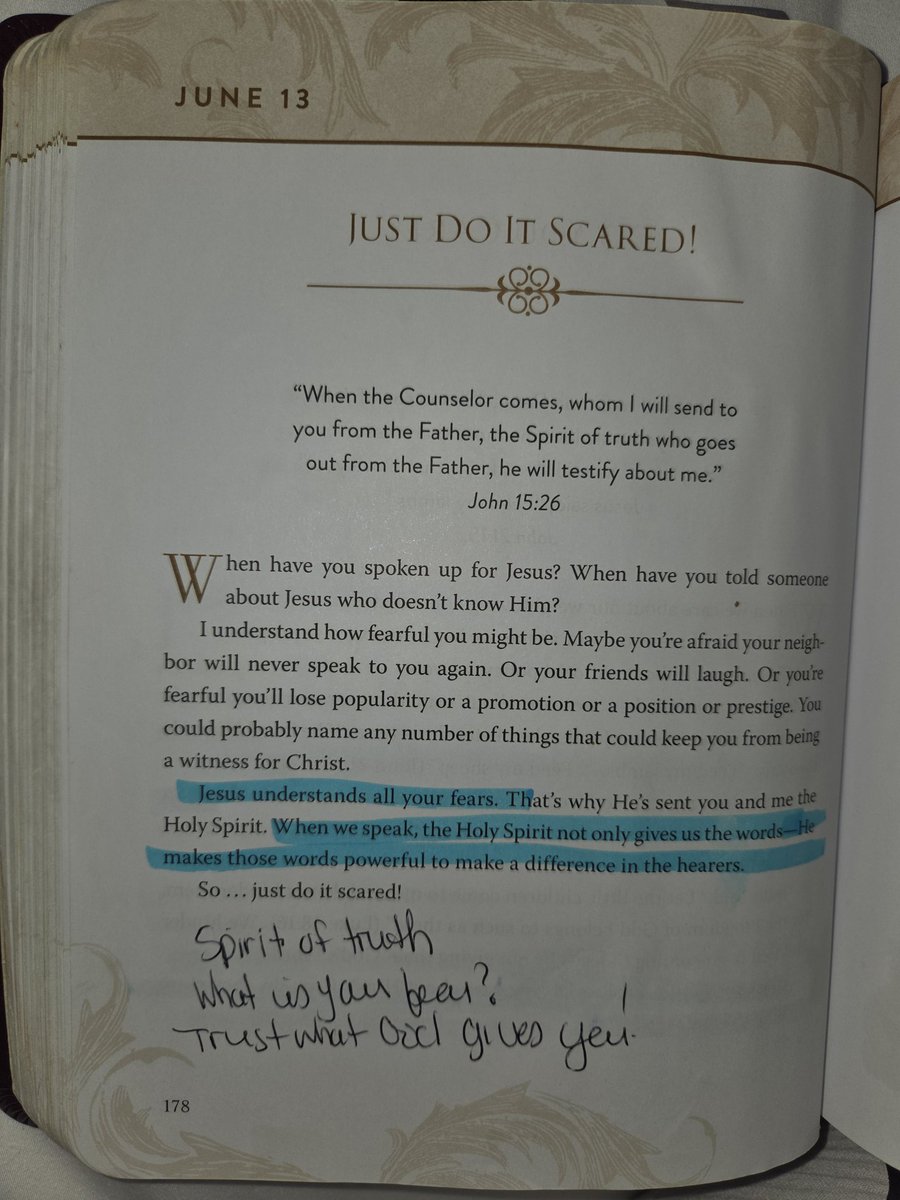 JUNE 13
JUST DO IT SCARED!
“When the Counselor comes, whom I will send to
you from the Father, the Spirit of truth who goes
out from the Father, he will testify about me.”
John 15:26
When have you spoken up for Jesus? When have you told someone
about Jesus who doesn’t know Him?
I understand how fearful you might be. Maybe you’re afraid your neigh-
bor will never speak to you again. Or your friends will laugh. Or you’re
fearful you’ll lose popularity or a promotion or a position or prestige. You
could probably name any number of things that could keep you from being
a witness for Christ.
Jesus understands all your fears. That’s why He’s sent you and me the
Holy Spirit. When we speak, the Holy Spirit not only gives us the words—He
makes those words powerful to make a difference in the hearers.
So ... just do it scared!
Spirit of truth
What is your fear?
Trust what God gives you!
178